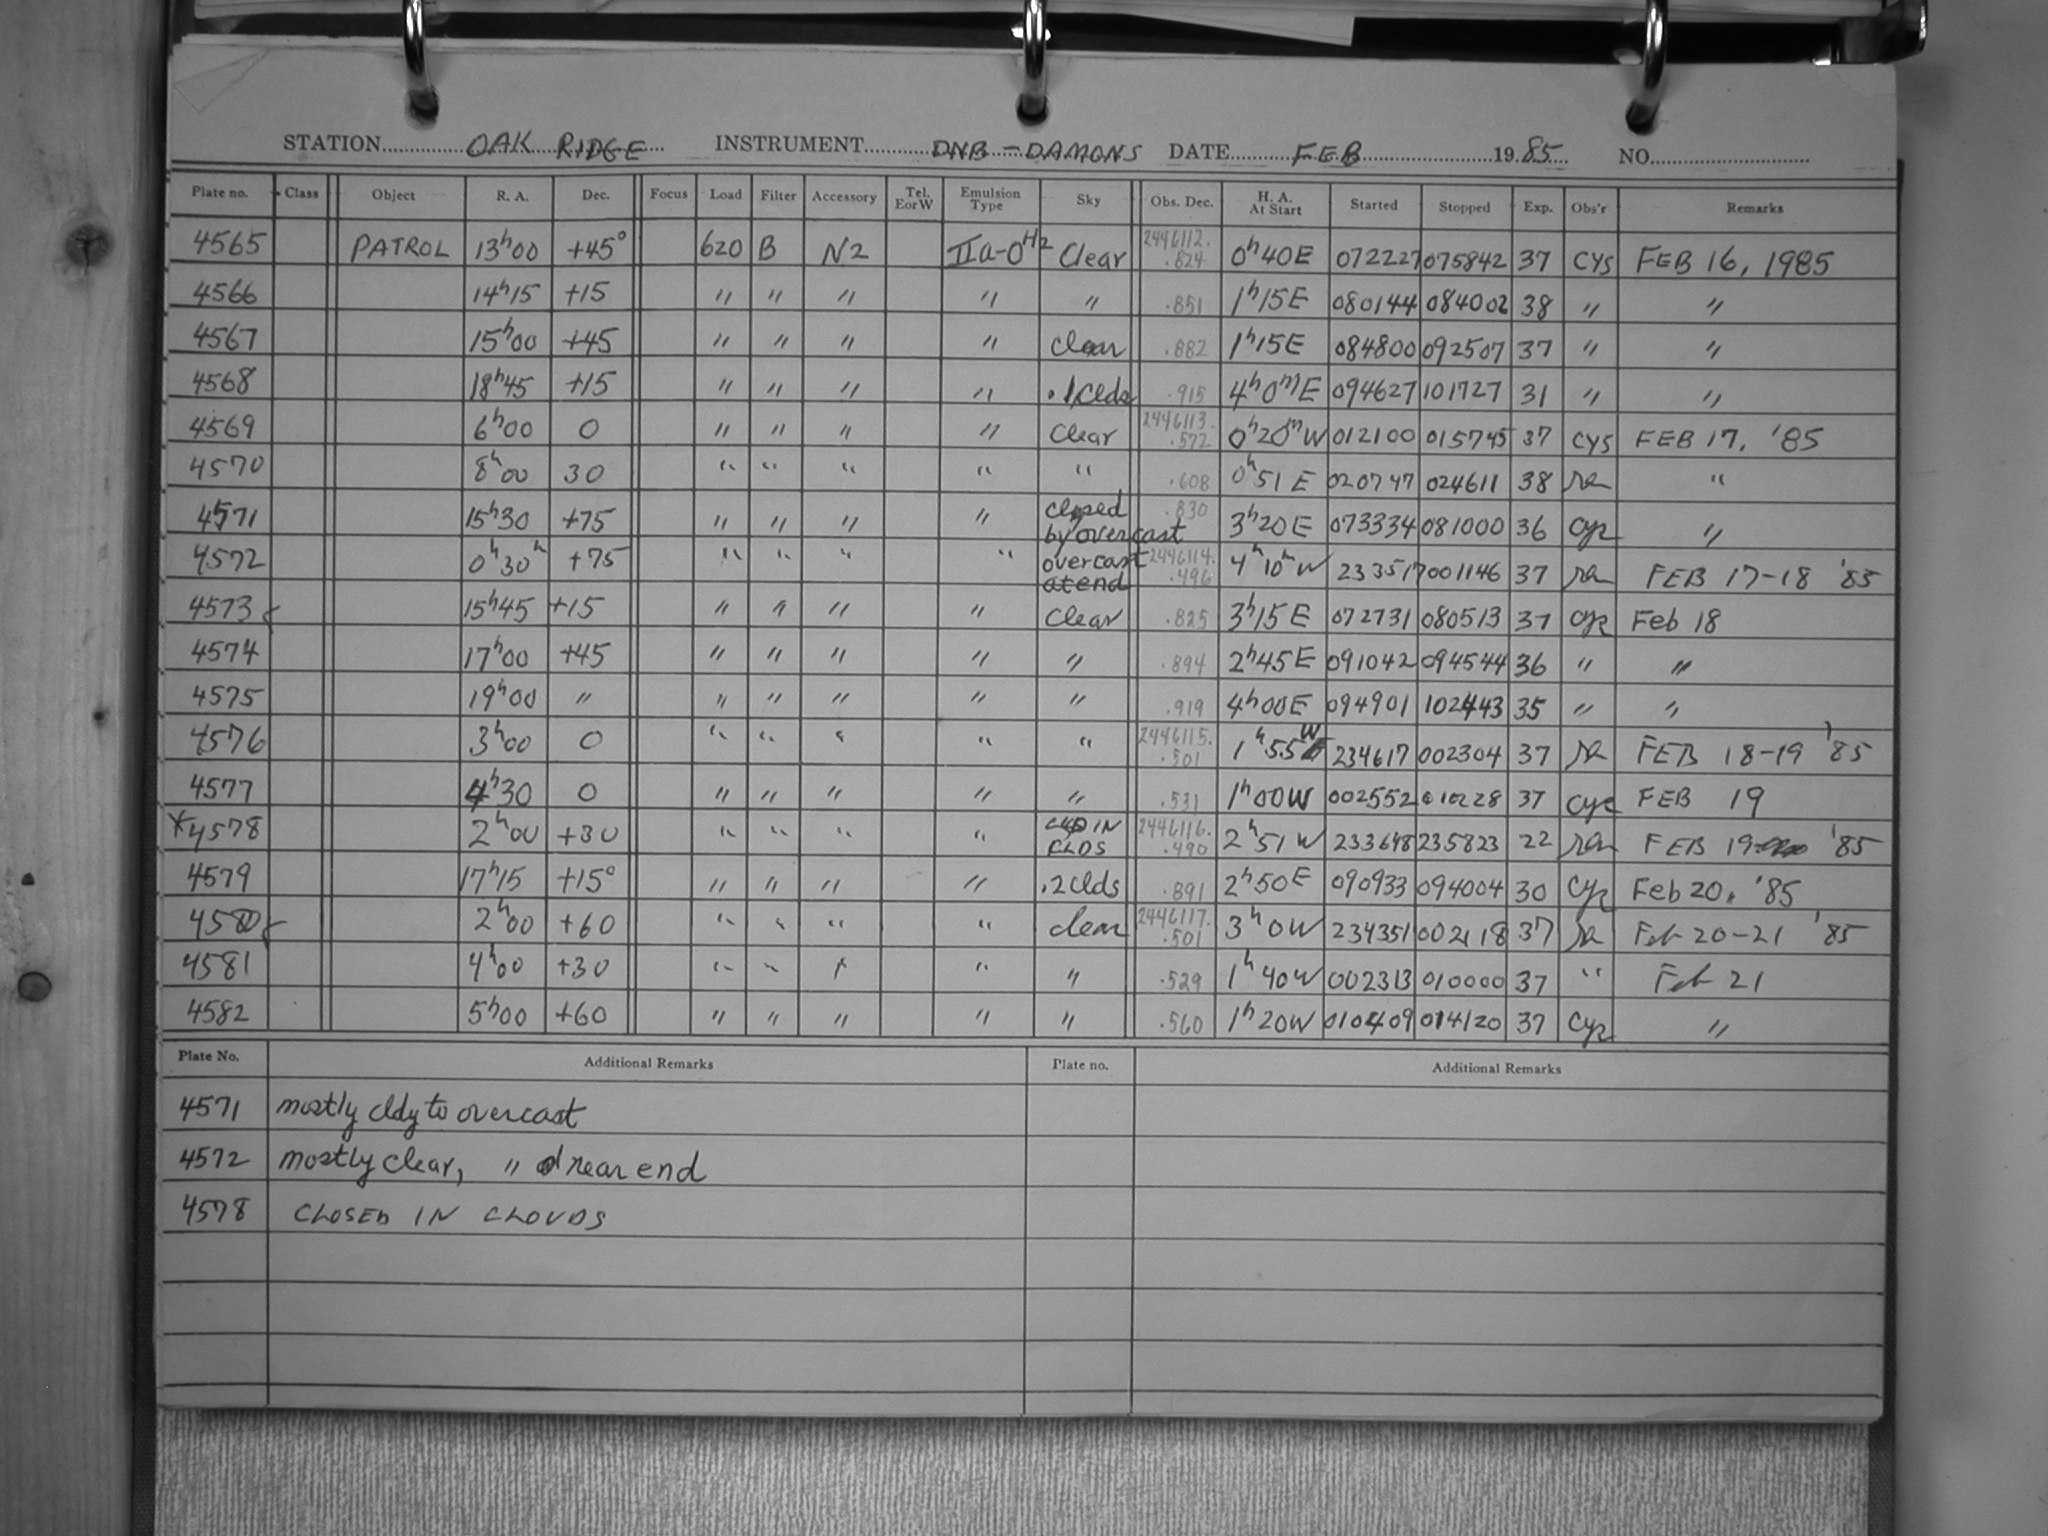 STATION OAK RIDGE INSTRUMENT DNB - DAMONS DATE FEB 1985 NO.
Plate no. Class Object R. A. Dec. Focus Load Filter Accessory Tel. E or W Emulsion Type Sky Obs. Dec. H. A. At Start Started Stopped Exp. Obs'r Remarks
4565 PATROL 13h00 +45° 620 B N2 IIa-O H2 Clear 2446112. .824 0h40E 072227 075842 37 cys FEB 16, 1985
4566 14h15 +15 " " " " " .851 1h15E 080144 084002 38 " "
4567 15h00 +45 " " " " clear .882 1h15E 084800 092507 37 " "
4568 18h45 +15 " " " " .1 clds .915 4h0mE 094627 101727 31 " "
4569 6h00 0 " " " " clear 2446113. .572 0h20mW 012100 015745 37 cys FEB 17, '85
4570 8h00 30 " " " " " .608 0h51E 020747 024611 38 "
4571 15h30 +75 " " " " closed by overcast .830 3h20E 073334 081000 36 "
4572 0h30h +75 " " " " overcast at end 2446114. .496 4h10hW 233517 001146 37 FEB 17-18 '85
4573 15h45 +15 " " " " clear .825 3h15E 072731 080513 37 Feb 18
4574 17h00 +45 " " " " " .894 2h45E 091042 094544 36 " "
4575 19h00 " " " " " " .919 4h00E 094901 102443 35 " "
4576 3h00 0 " " " " " 2446115. .501 1h55W 234617 002304 37 FEB 18-19 '85
4577 4h30 0 " " " " " .531 1h00W 002552 010228 37 FEB 19
*4578 2h00 +30 " " " " IN CLDS 2446116. .490 2h51W 233648 235823 22 FEB 19 '85
4579 17h15 +15° " " " " .2 clds .891 2h50E 090933 094004 30 Feb 20, '85
4580 2h00 +60 " " " " clear 2446117. .501 3h0W 234351 002118 37 Feb 20-21 '85
4581 4h00 +30 " " " " " .529 1h40W 002313 010000 37 " Feb 21
4582 5h00 +60 " " " " " .560 1h20W 010409 014120 37 "
Plate No. Additional Remarks Plate no. Additional Remarks
4571 mostly cldy to overcast
4572 mostly clear, " near end
4578 CLOSED IN CLOUDS